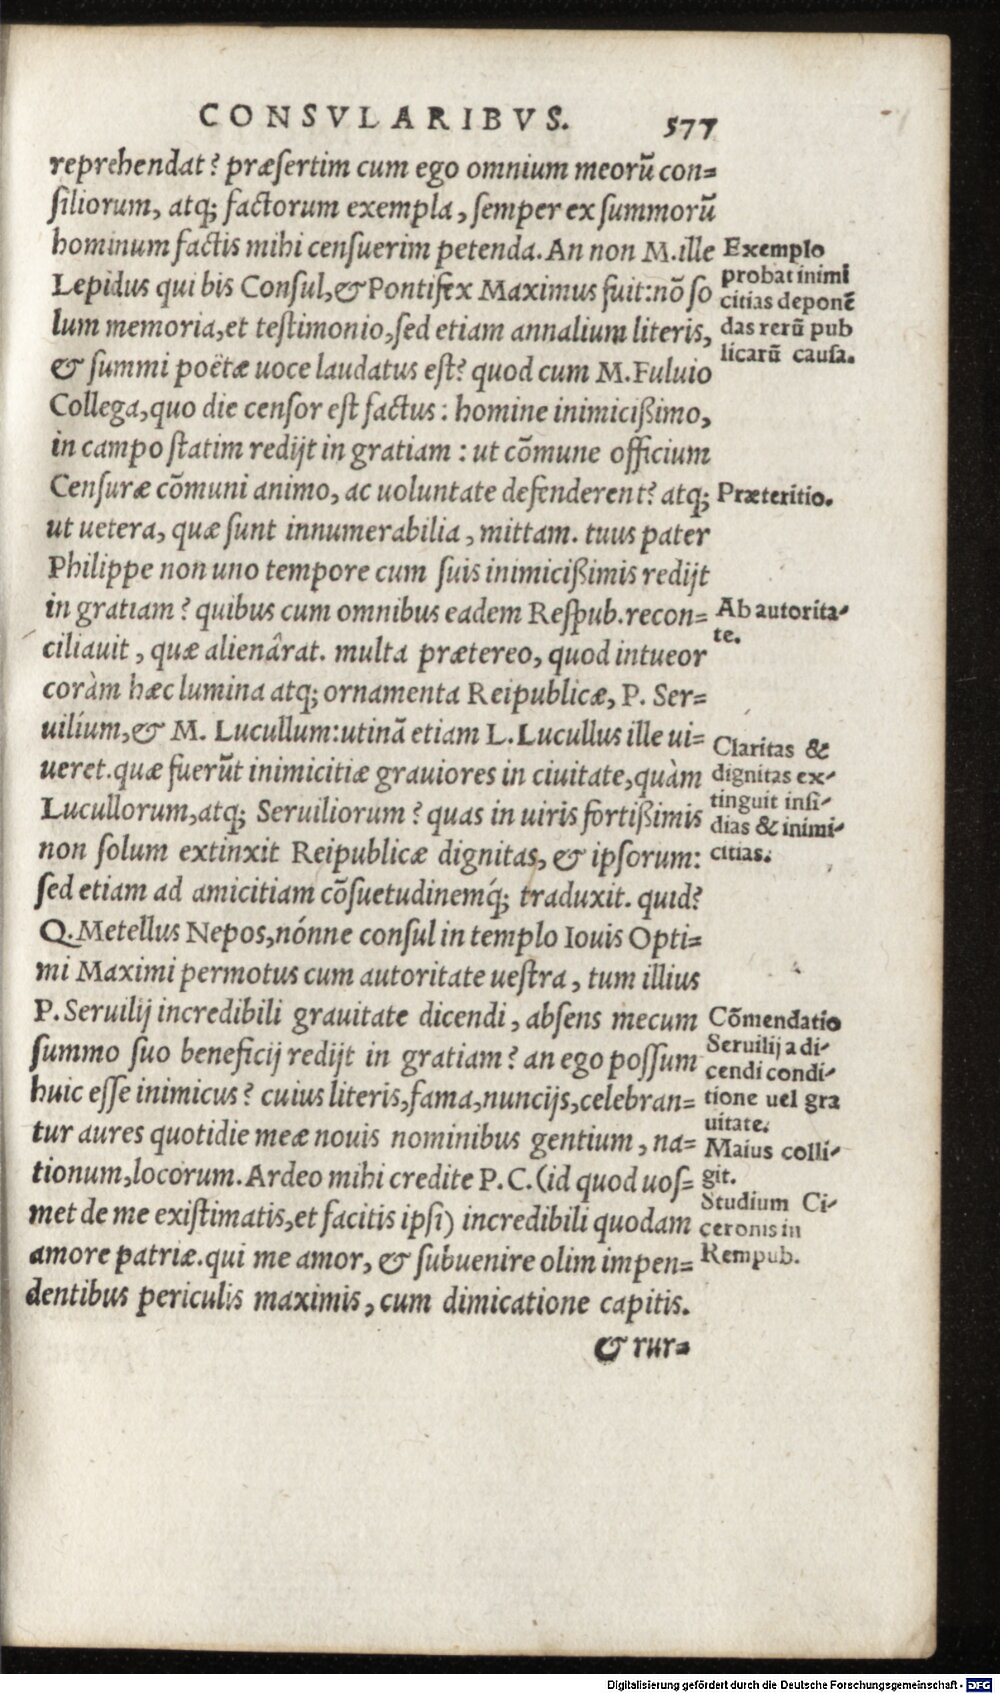 CONSVLARIBVS. 577
reprehendat? præsertim cum ego omnium meorū con=
siliorum, atq; factorum exempla, semper ex summorū
hominum factis mihi censuerim petenda. An non M. ille
Lepidus qui bis Consul, & Pontifex Maximus fuit: nō so
lum memoria, et testimonio, sed etiam annalium literis,
& summi poëtæ uoce laudatus est? quod cum M. Fuluio
Collega, quo die censor est factus: homine inimicißimo,
in campo statim redijt in gratiam: ut cōmune officium
Censuræ cōmuni animo, ac uoluntate defenderent? atq;
ut uetera, quæ sunt innumerabilia, mittam. tuus pater
Philippe non uno tempore cum suis inimicißimis redijt
in gratiam? quibus cum omnibus eadem Respub. recon=
ciliauit, quæ alienârat. multa prætereo, quod intueor
coràm hæc lumina atq; ornamenta Reipublicæ, P. Ser=
uilium, & M. Lucullum: utinā etiam L. Lucullus ille ui=
ueret. quæ fuerūt inimicitiæ grauiores in ciuitate, quàm
Lucullorum, atq; Seruiliorum? quas in uiris fortißimis
non solum extinxit Reipublicæ dignitas, & ipsorum:
sed etiam ad amicitiam cōsuetudinemq́; traduxit. quid?
Q. Metellus Nepos, nónne consul in templo Iouis Opti=
mi Maximi permotus cum autoritate uestra, tum illius
P. Seruilij incredibili grauitate dicendi, absens mecum
summo suo beneficij redijt in gratiam? an ego possum
huic esse inimicus? cuius literis, fama, nuncijs, celebran=
tur aures quotidie meæ nouis nominibus gentium, na=
tionum, locorum. Ardeo mihi credite P. C. (id quod uos=
met de me existimatis, et facitis ipsi) incredibili quodam
amore patriæ. qui me amor, & subuenire olim impen=
dentibus periculis maximis, cum dimicatione capitis.
& rur=
Exemplo
probat inimi
citias deponē
das rerū pub
licarū causa.
Præteritio.
Ab autorita-
te.
Claritas &
dignitas ex-
tinguit insi-
dias & inimi-
citias.
Cōmendatio
Seruilij a di-
cendi condi-
tione uel gra
uitate.
Maius colli-
git.
Studium Ci-
ceronis in
Rempub.
Digitalisierung gefördert durch die Deutsche Forschungsgemeinschaft - DFG